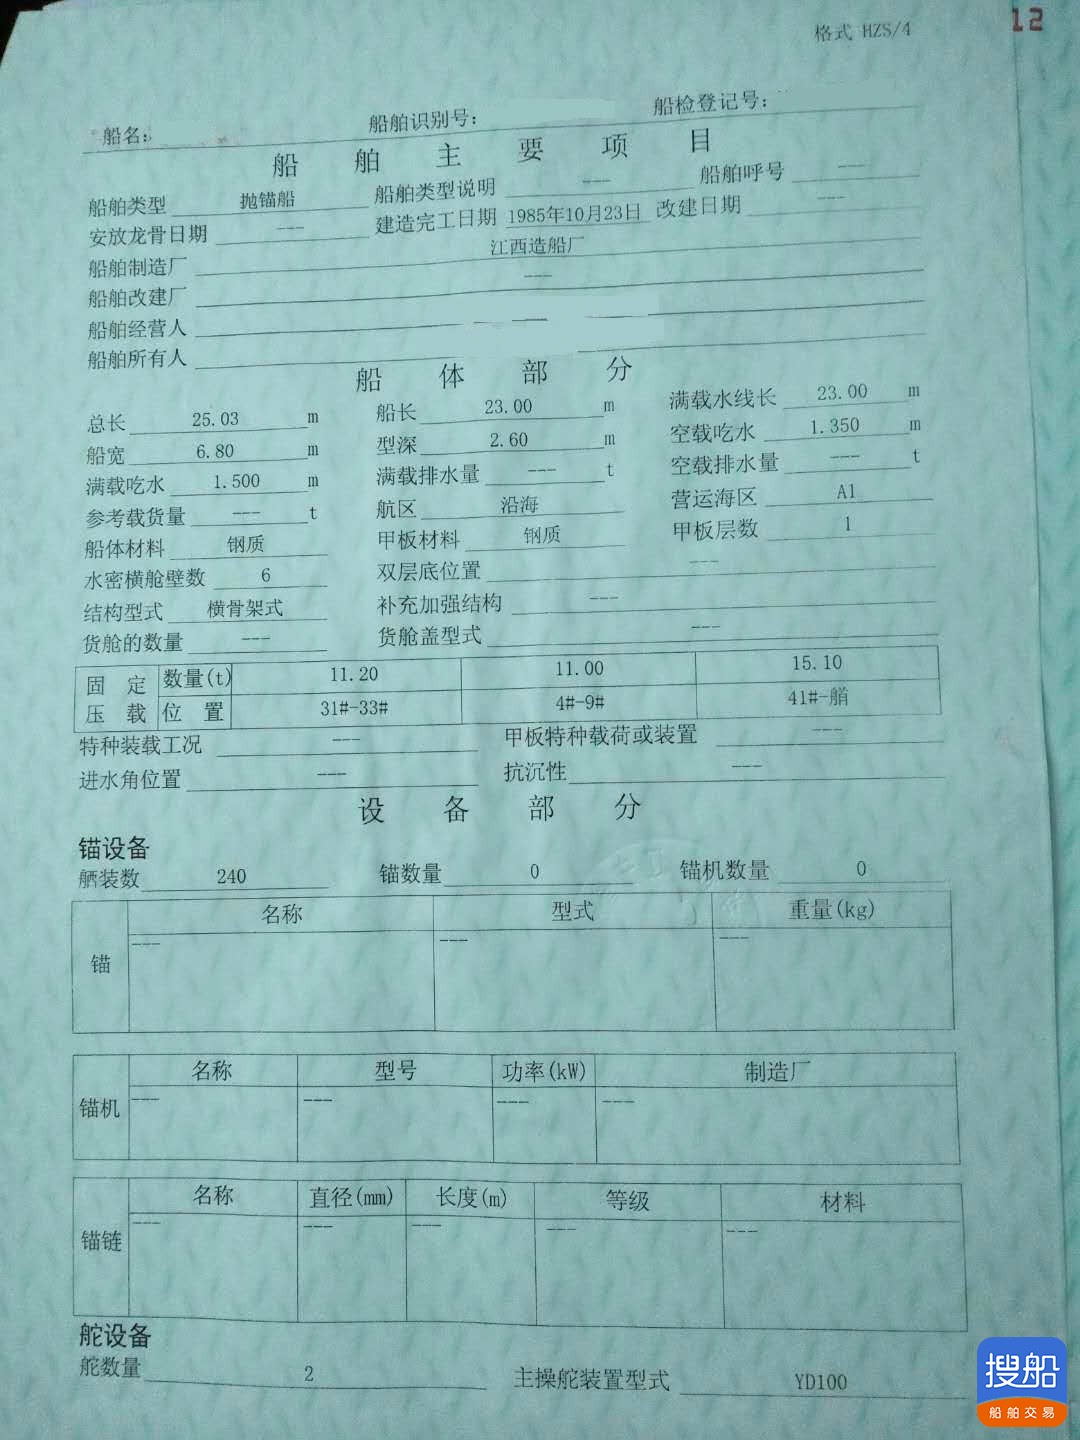 格式 HZS/4
12
船名: 船舶识别号: 船检登记号:
船舶主要项目
船舶类型 抛锚船 船舶类型说明 --- 船舶呼号 ---
安放龙骨日期 --- 建造完工日期 1985年10月23日 改建日期 ---
船舶制造厂 江西造船厂
船舶改建厂 ---
船舶经营人
船舶所有人
船体部分
总长 25.03 m 船长 23.00 m 满载水线长 23.00 m
船宽 6.80 m 型深 2.60 m 空载吃水 1.350 m
满载吃水 1.500 m 满载排水量 --- t 空载排水量 --- t
参考载货量 --- t 航区 沿海 营运海区 A1
船体材料 钢质 甲板材料 钢质 甲板层数 1
水密横舱壁数 6 双层底位置 ---
结构型式 横骨架式 补充加强结构 ---
货舱的数量 --- 货舱盖型式 ---
固定 数量(t) 11.20 11.00 15.10
压载 位置 31#-33# 4#-9# 41#-艏
特种装载工况 --- 甲板特种载荷或装置 ---
进水角位置 --- 抗沉性 ---
设备部分
锚设备
舾装数 240 锚数量 0 锚机数量 0
名称 型式 重量(kg)
锚 --- --- ---
名称 型号 功率(kW) 制造厂
锚机 --- --- --- ---
名称 直径(mm) 长度(m) 等级 材料
锚链 --- --- --- --- ---
舵设备
舵数量 2 主操舵装置型式 YD100
搜船
船舶交易